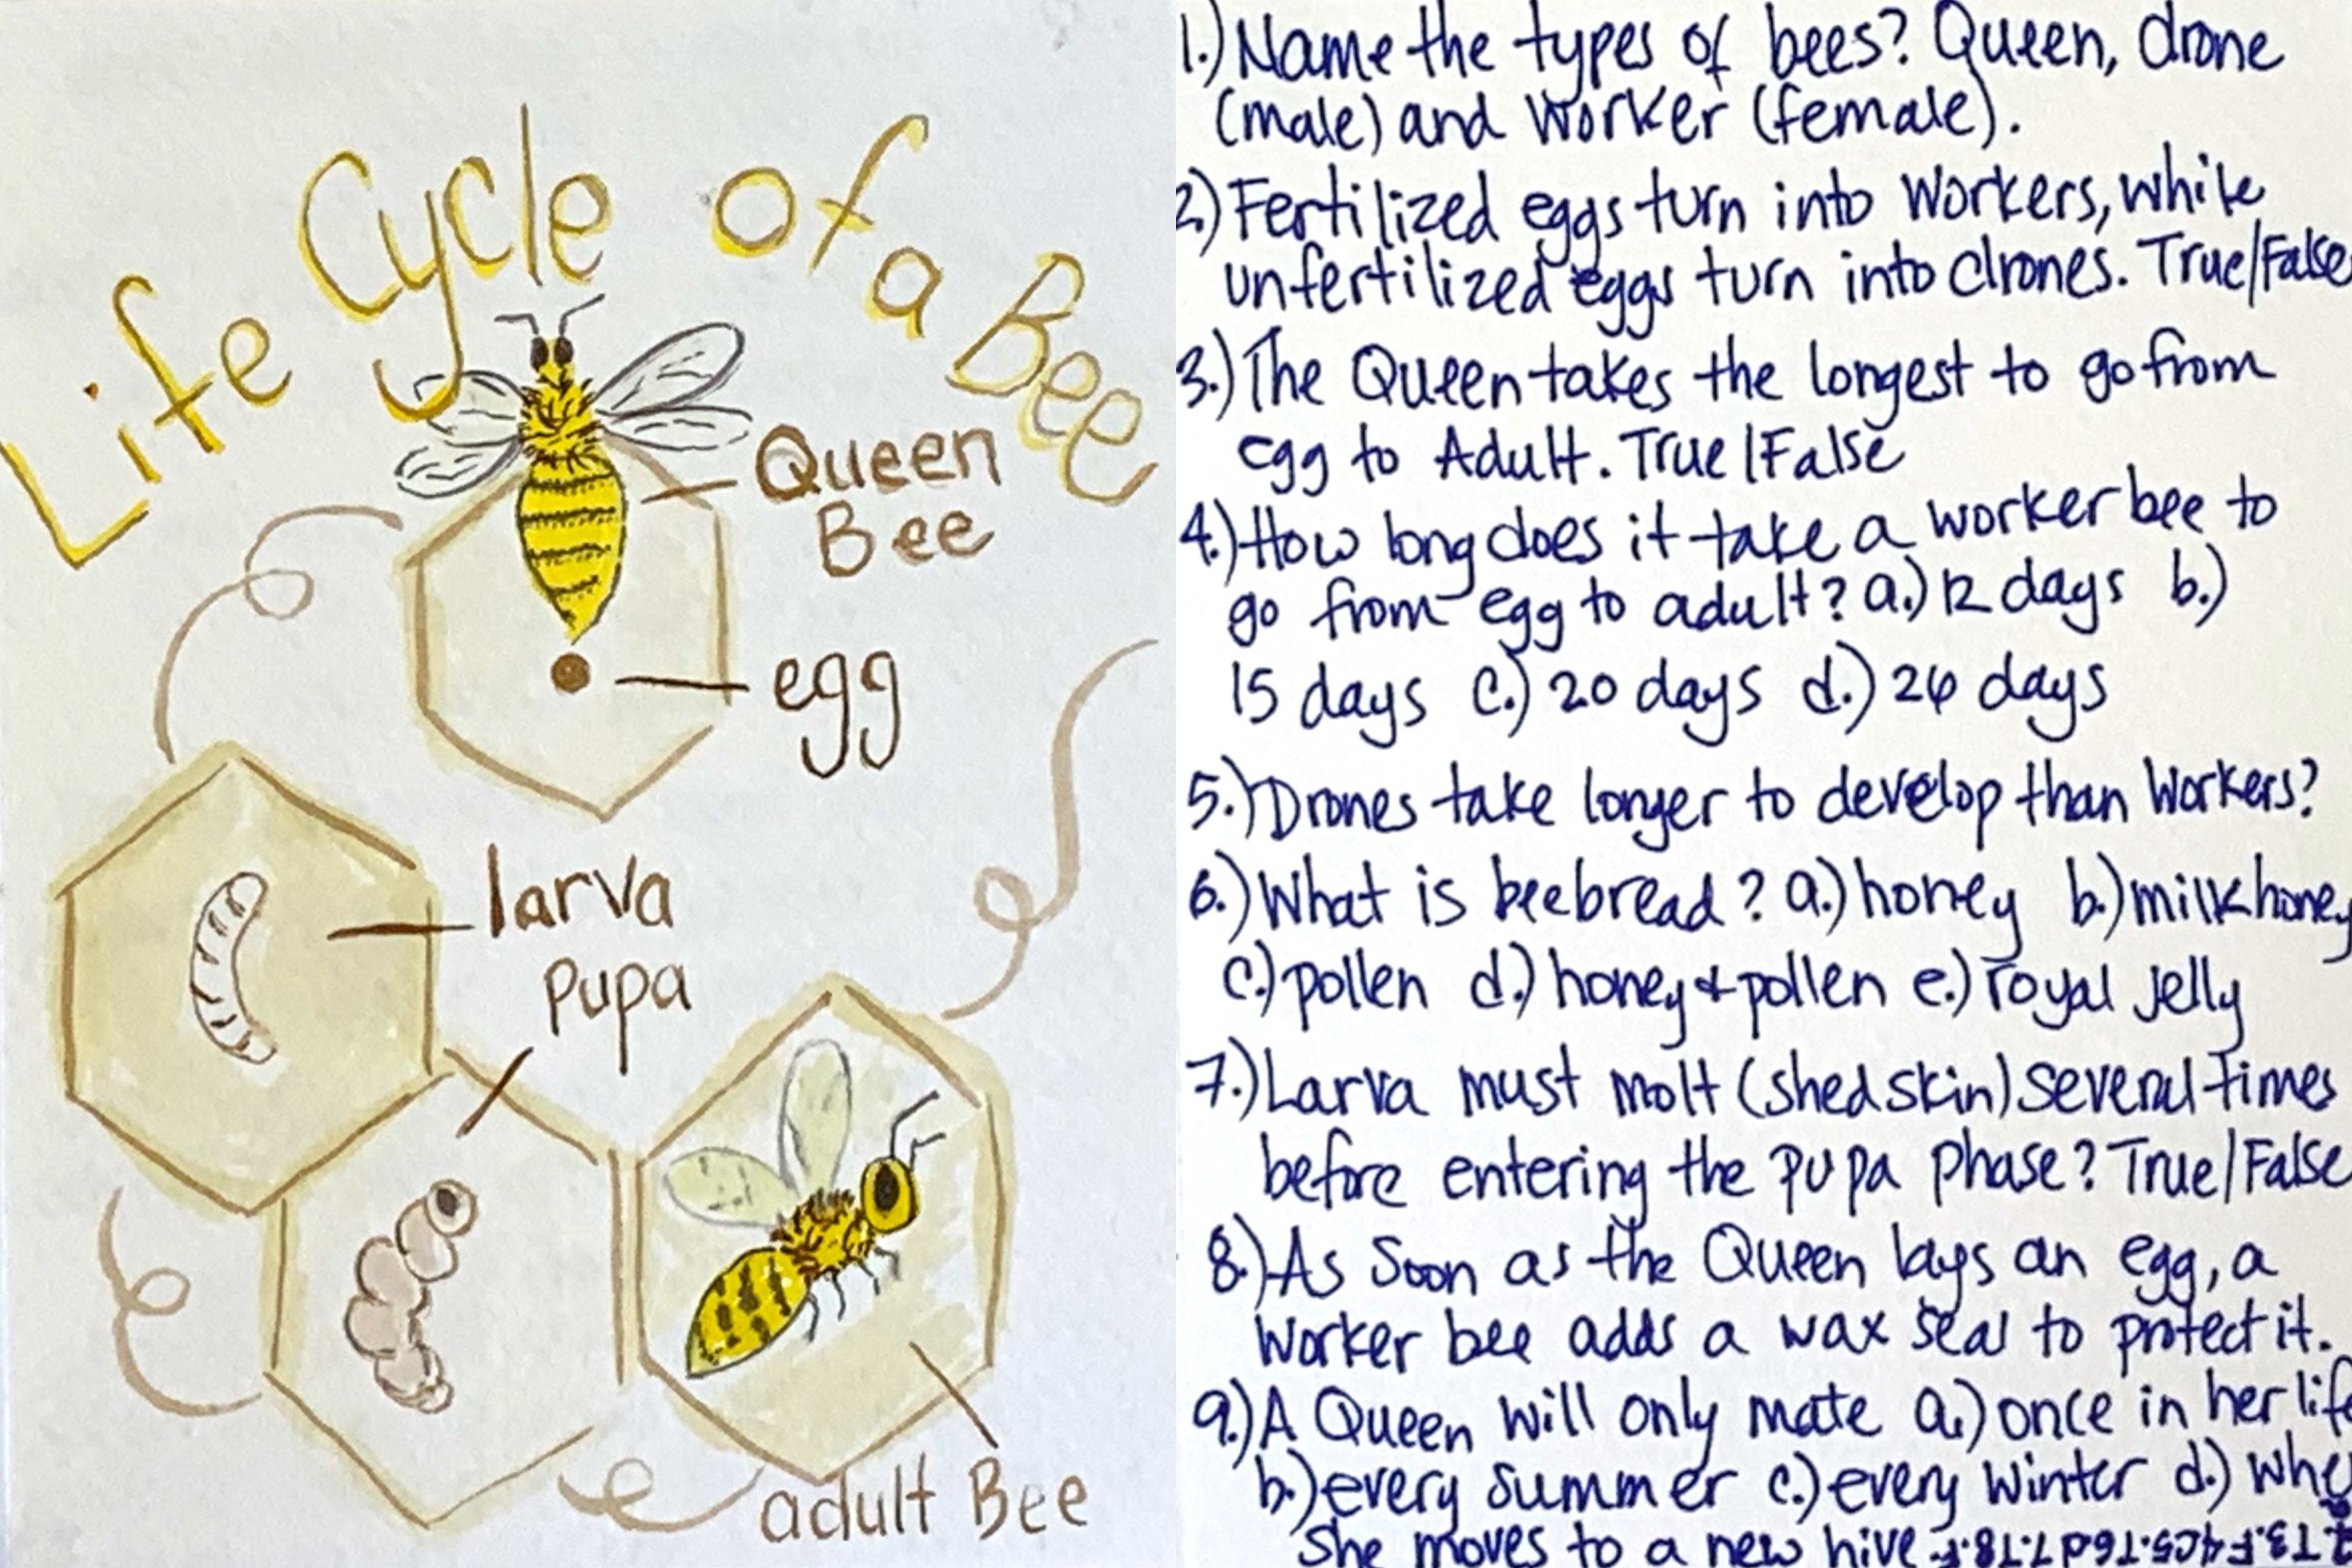 Life Cycle of a Bee
Queen
Bee
egg
larva
pupa
adult Bee
1.) Name the types of bees? Queen, drone
(male) and Worker (female).
2.) Fertilized eggs turn into Workers, while
unfertilized eggs turn into drones. True/False
3.) The Queen takes the longest to go from
egg to Adult. True/False
4.) How long does it take a worker bee to
go from egg to adult? a.) 12 days b.)
15 days c.) 20 days d.) 26 days
5.) Drones take longer to develop than Workers?
6.) What is beebread? a.) honey b.) milkhoney
c.) pollen d.) honey + pollen e.) royal jelly
7.) Larva must molt (shed skin) several times
before entering the pupa phase? True/False
8.) As Soon as the Queen lays an egg, a
worker bee adds a wax seal to protect it.
9.) A Queen will only mate a.) once in her
b.) every summer c.) every Winter d.)
she moves to a new hive
T 3.F 4.c 5.T 6.d 7.T 8.F